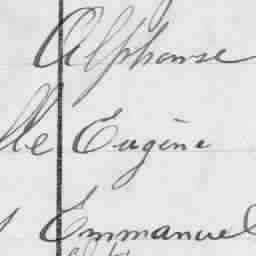 Alphonse
lle Eugène
Emmanuel